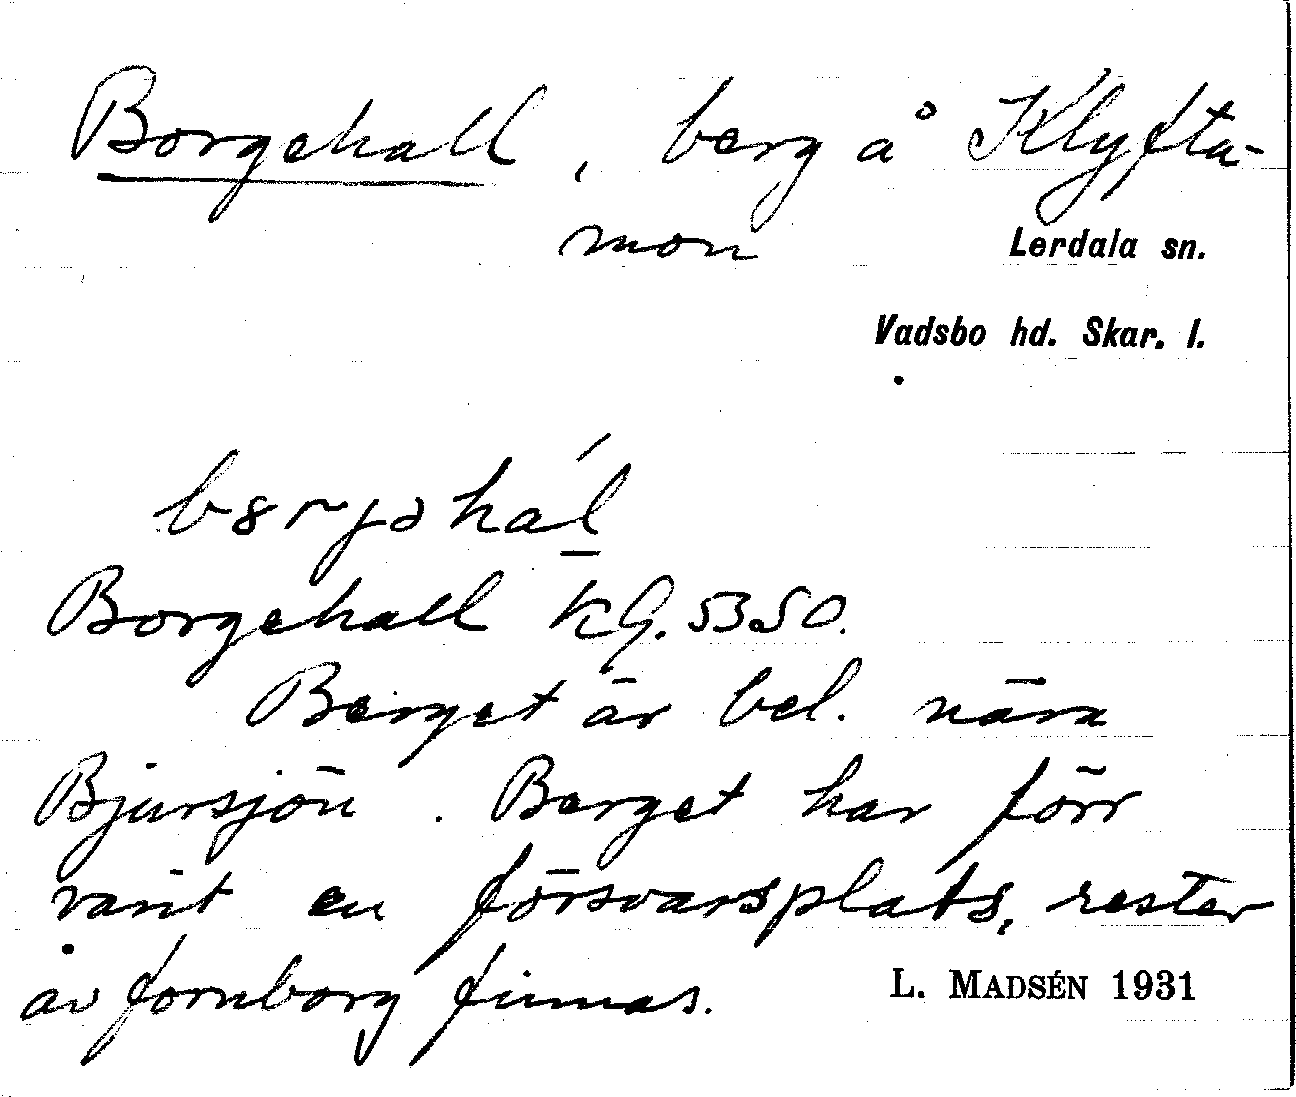 Borgehall, berg å Klyfta-
mon
Lerdala sn.
Vadsbo hd. Skar. l.
Borgehall KG. 53.50.
Berget är bel. nära
Bjursjön. Berget har förr
varit en försvarsplats, rester
av fornborg finnas.
L. MADSÉN 1931